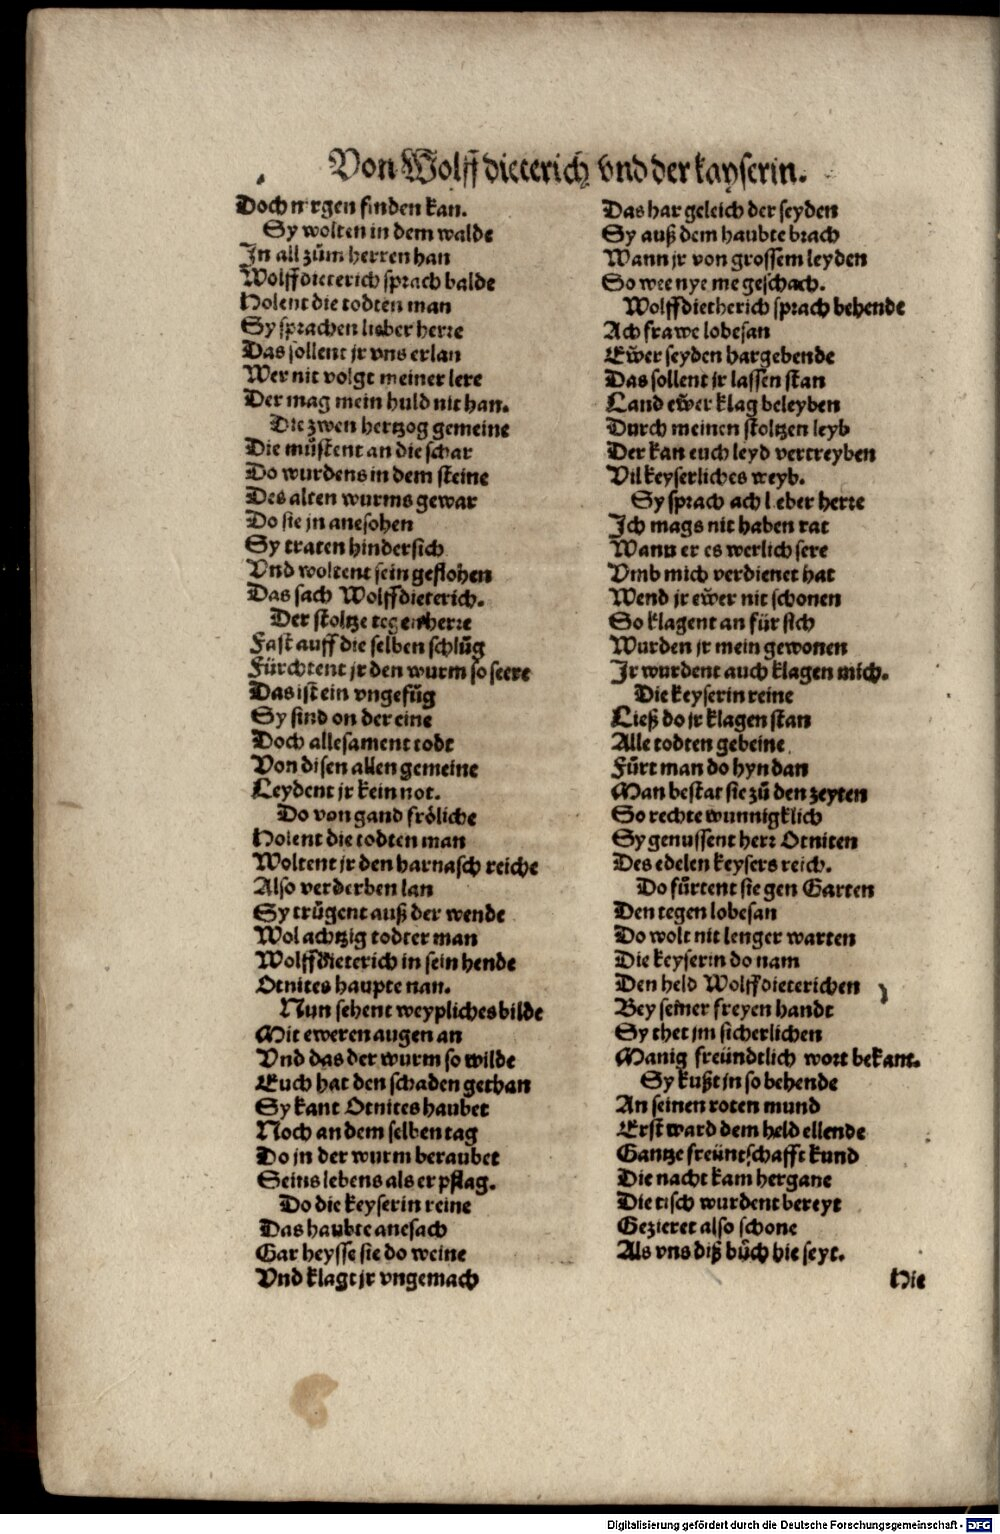 Von Wolffdieterich vnd der kayserin.
Doch nrgen finden kan.
Sy wolten in dem walde
In all zům herren han
Wolffdieterich sprach balde
Holent die todten man
Sy sprachen lieber herre
Das sollent jr vns erlan
Wer nit volgt meiner lere
Der mag mein huld nit han.
Die zwen hertzog gemeine
Die můstent an die schar
Do wurdens in dem steine
Des alten wurms gewar
Do sie jn anesohen
Sy traten hindersich
Vnd woltent sein geflohen
Das sach Wolffdieterich.
Der stoltze tegen herre
Fast auff die selben schlůg
Fürchtent jr den wurm so seere
Das ist ein vngefůg
Sy sind on der eine
Doch allesament todt
Von disen allen gemeine
Leydent jr kein not.
Do von gand fröliche
Holent die todten man
Woltent jr den harnasch reiche
Also verderben lan
Sy trůgent auß der wende
Wol achtzig todter man
Wolffdieterich in sein hende
Otnites haupte nan.
Nun sehent weypliches bilde
Mit eweren augen an
Vnd das der wurm so wilde
Euch hat den schaden gethan
Sy kant Otnites haubet
Noch an dem selben tag
Do jn der wurm beraubet
Seins lebens als er pflag.
Do die keyserin reine
Das haubte anesach
Gar heysse sie do weine
Vnd klagt jr vngemach
Das har geleich der seyden
Sy auß dem haubte brach
Wann jr von grossem leyden
So wee nye me geschach.
Wolffdietherich sprach behende
Ach frawe lobesan
Eẅer seyden har gebende
Das sollent jr lassen stan
Land eẅer klag beleyben
Durch meinen stoltzen leyb
Der kan euch leyd vertreyben
Vil keyserliches weyb.
Sy sprach ach l eber herre
Ich mags nit haben rat
Wann er es werlich sere
Vmb mich verdienet hat
Wend jr eẅer nit schonen
So klagent an für sich
Wurden jr mein gewonen
Ir wurdent auch klagen mich.
Die keyserin reine
Ließ do jr klagen stan
Alle todten gebeine
Fůrt man do hyn dan
Man bestat sie zů den zeyten
So rechte wunnigklich
Sy genussent herr Otniten
Des edelen keysers reich.
Do fůrtent sie gen Garten
Den tegen lobesan
Do wolt nit lenger warten
Die keyserin do nam
Den held Wolffdieterichen
Bey seiner freyen handt
Sy thet jm sicherlichen
Manig freündtlich wort bekant.
Sy kußt jn so behende
An seinen roten mund
Erst ward dem held ellende
Gantze freüntschafft kund
Die nacht kam hergane
Die tisch wurdent bereyt
Gezieret also schone
Als vns diß bůch hie seyt.
Hie
Digitalisierung gefördert durch die Deutsche Forschungsgemeinschaft - DFG